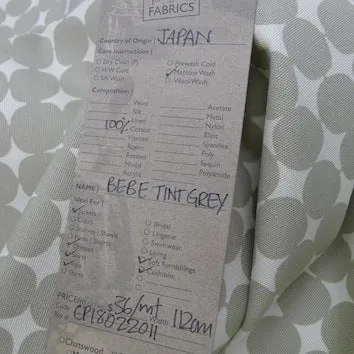 FABRICS
Country of Origin JAPAN
Care Instructions
Dry Clean (P) Prewash Cold
H/W Cold Machine Wash
Silk Wash Wool Wash
Composition:
Wool Acetate
Silk Metal
100% Linen Nylon
Cotton Elast.
Viscose Spandex
Rayon Poly
Ramee Sequin
Modal Polyamide
Acrylic
NAME BEBE TINT GREY
Ideal For
Jackets Bridal
Coats Lingerie
Scarves / Shawls Swimwear
Lining
Soft Furnishings
Skirts Cushions
Tops
PRICE/mt $36/mt 112cm
Code Width
CP18022011
Chatswood